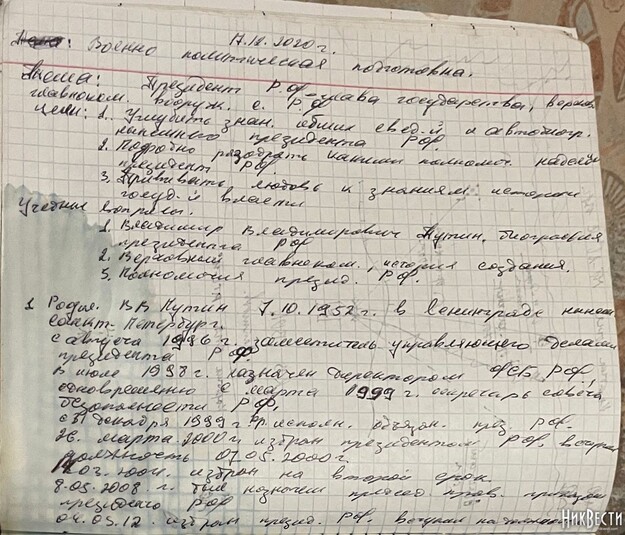 17.12.2020г.
: Военно политическая подготовка.
Тема: Президент РФ - глава государства, верхов.
главноком. вооруж. с. РФ
Цели: 1. Углубить знан. общих свед-й и автобиогр.
нынешнего президента РФ
2. Подробно разобрать какими полномоч. наделён
президент РФ.
3. Прививать любовь к знаниям истории
госуд-й власти
Учебные вопросы.
1. Владимир Владимирович Путин, биография
президента РФ
2. Верховный главноком., история создания.
3. Полномочия презид. РФ.
1 Родил. ВВ Путин 7.10.1952г. в Ленинграде ныне
Санкт-Петербург.
с августа 1996г. заместитель управляющего делами
президента РФ
В июле 1998г. назначен директором ФСБ РФ,
одновременно с марта 1999г. секретарь совета
безопасности РФ.
с 31 декабря 1999г. исполн. обязан. през. РФ.
26. марта 2000г избран президентом РФ, вступил
должность 07.05.2000г.
избран на второй срок.
8.05.2008г. был назначен
РФ
04.03.12. избран презид. РФ, вступил на
НикВести